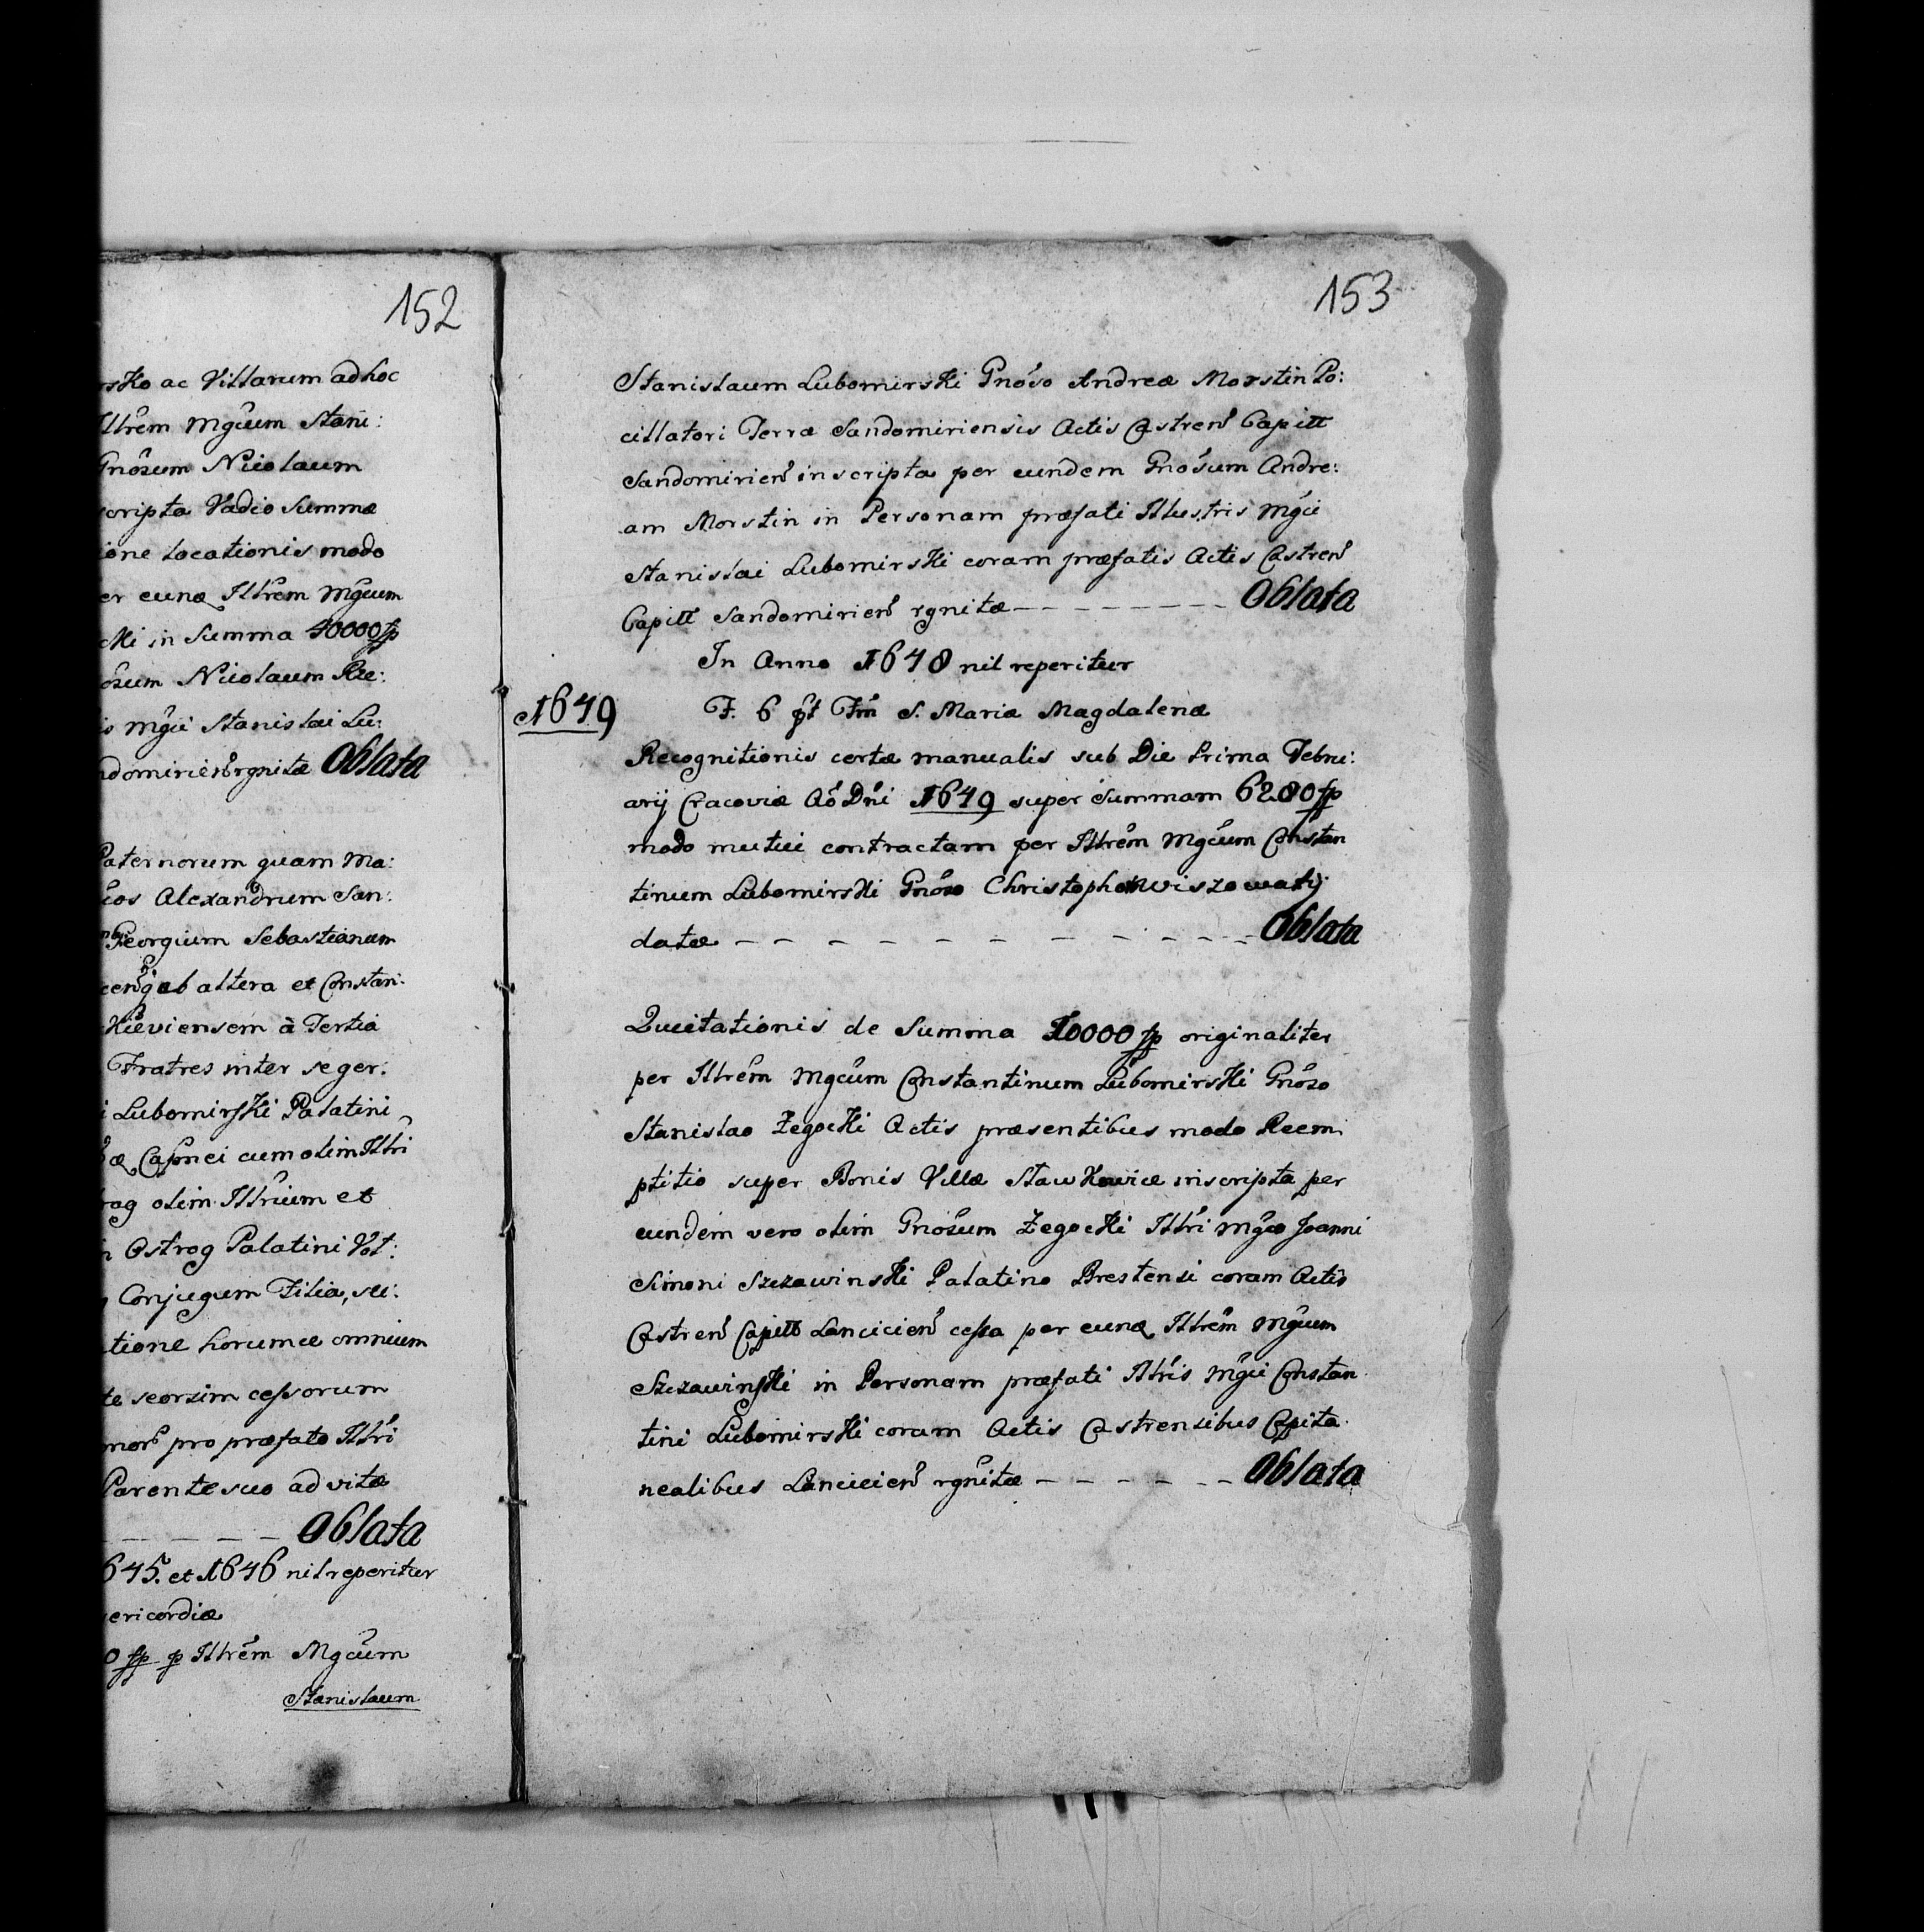 152
rsko ac Villarum adhoc
Illrem Mgcum Stani:
Gnosum Nicolaum
scripta Vadio Summæ
ione locationis modo
er eund Illrem Mgcum
cki in Summa 40000 fp
osum Nicolaum Re:
is Mgci Stanislai Lu:
ndomirien rgnitæ Oblata
Paternorum quam Ma:
cos Alexandrum San:
Georgium Sebastianum
ab altera et Constan:
Kieviensem à Tertia
Fratres inter se ger:
i Lubomirski Palatini
Capnei cum olim Illri
rag olim Illrium et
n Ostrog Palatini Vol:
Conjugum Filia, sci:
tione horumce omnium
te seorsim cessorum
mor pro præfato Illri
Parente suo ad vitæ
Oblata
645. et 1646 nil reperitur
ericordiæ
0 fp p Illrem Mgcum
Stanislaum
153
Stanislaum Lubomirski Gnoso Andreæ Morstin Po:
cillatori Terræ Sandomiriensis Actis Castren Capitt
Sandomirien inscripta per eundem Gnosum Andre:
am Morstin in Personam præfati Illustris Mgci
Stanislai Lubomirski coram præfatis Actis Castren
Capitt Sandomirien rgnitæ - - - - - - - - Oblata
In Anno 1648 nil reperitur
1649
F. 6 pt Fm S. Mariæ Magdalenæ
Recognitionis certæ manualis sub Die Prima Febru:
arij Cracoviæ Ao Dni 1649 super Summam 6280 fp
modo mutui contractam per Illrem Mgcum Constan
tinum Lubomirski Gnoso Christophoro Wiszowatij
datæ - - - - - - - - - - - - Oblata
Quietationis de Summa 10000 fp originaliter
per Illrem Mgcum Constantinum Lubomirski Gnoso
Stanislao Zegocki Actis præsentibus modo Reem
ptitio super Bonis Villæ Stawkowice inscripta per
eundem vero olim Gnosum Zegocki Illri Mgco Joanni
Simoni Szczawinski Palatino Brestensi coram Actis
Castren Capitt Lancicien cessa per eund Illrem Mgcum
Szczawinski in Personam præfati Illris Mgci Constan
tini Lubomirski coram Actis Castrensibus Capita
nealibus Lancicien rgnitæ - - - - - - Oblata